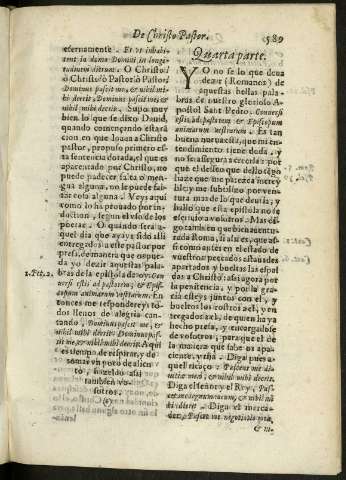 De Christo Pastor.
589
eternamente. Et vt inhabi-
tem in domo Domini in longi-
tudinem dierum. O Christo!
ô Christo! ô Pastor! ò Pastor!
Dominus pascit me, & nihil mi-
hi deerit. Dominus pascit me, &
nihil mihi deerit. Supo muy
bien lo que se dixo Dauid,
quando començando esta ra
cion en que loaua a Christo
pastor, propuso primero es-
ta sentencia dotada, el que es
apacentado por Christo, no
puede padecer falta o men-
gua alguna, no le puede fal-
tar cota alguna. Veys aqui
como lo ha prouado por in-
duction, segun el vso de los
poetas. O quando sera a-
quel dia que ayays de assi
entregados a este pastor por
presa, de manera que os pue-
da yo dezir aquestas pala-
bras de la epistola de oy: Con-
uersi estis ad pastorem, & Epis-
copum animarum vestrarum. En
tonces me respondereys to-
dos llenos de alegria can-
tando, Dominus pascit me, &
nihil mihi deerit. Dominus pas-
cit me, & nihil mihi deerit. Aqui
es tiempo de respirar, y de
tomar vn poco de alien-
to, hazeldo assi
tambien vo-
sotros.
(?)
1. Pet. 2.
Quarta parte.
YO no se lo que deua
dezir (Romanos) de
aquestas bellas pala-
bras de nuestro glorioso A-
postol Sant Pedro: Conuersi
estis, ad pastorem, & Episcopum
animarum vestrarum. Es tan
buena nueua esta, que mi en-
tendimiento tiene duda, y
no se assegura a creerla: por
que el desseo grande que tengo
haze que me parezca increy
ble; y me sublimo por ven-
tura mas de lo que deuria, y
hallo que esta epistola no se
escriuio a vosotros. Mas di-
gan tambien que buenauen-
tura, Romanos, seria esta, que as-
si como antes en el estado de
vuestros peccados estauades
apartados y bueltas las espal-
das a Christo: assi agora por
la penitencia, y por la gra-
cia esteys juntos con el, y
boelto los rostros a el, y en-
tregados del, de quien ha
hecho presa, y encargadose
de vosotros; para que de
la manera que sabe os apa-
ciente, y rija. Diga pues a-
quel ricaço: Pascit me Domi-
nus, & nihil mihi deerit.
Diga el señor y el Rey, Pas-
cit me regnum meum, & nihil mi-
hi deerit. Diga el merca-
der, Pascit me negotiatio mea,
& ni-